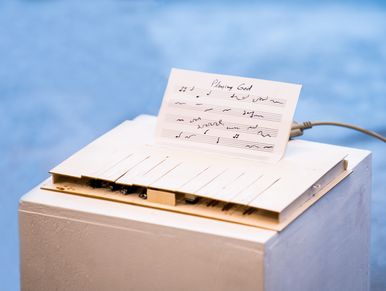 Playing God